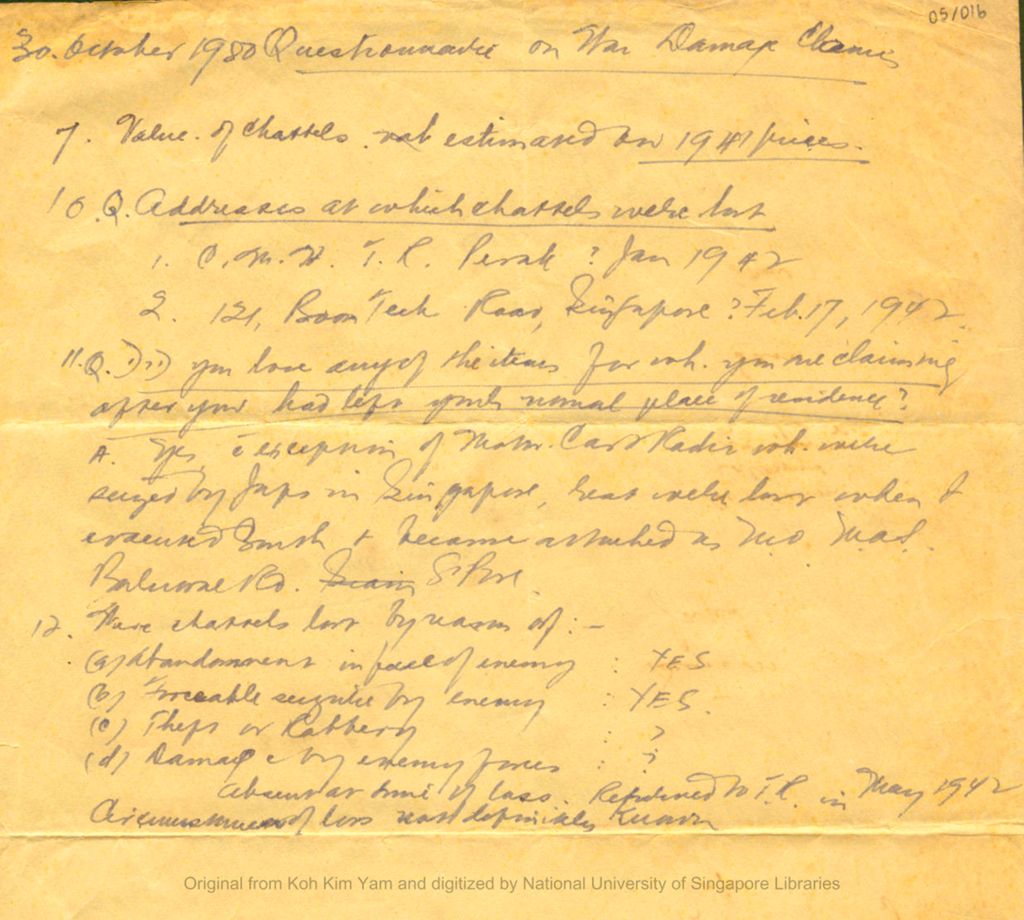 05/016
30. October 1950 Questionnaire on War Damage Claims
7. Value of chattels estimated on 1941 prices.
10. Q. Addresses at which chattels were lost
1. C. M. H. T. R. Perak ? Jan 1942
2. 121, Boon Teck Road, Singapore ? Feb. 17, 1942.
11. Q. you lose any of the items for wh. you are claiming
after your had left your normal place of residence?
A. Yes, exception of Motor-Car & Radio wh. were
seized by Japs in Singapore, were lost when I
evacuated & became attached as M.O. M.A.S.
Rd. S'Pore.
12. Were chattels lost by reason of :-
(a) Abandonment in face of enemy : YES
(b) Forceable seizure by enemy : YES.
(c) Theft or Robbery : ?
(d) Damage by enemy forces : ?
Absent at time of loss. Returned to T.R. in May 1942
Circumstances of loss not definitely known
Original from Koh Kim Yam and digitized by National University of Singapore Libraries